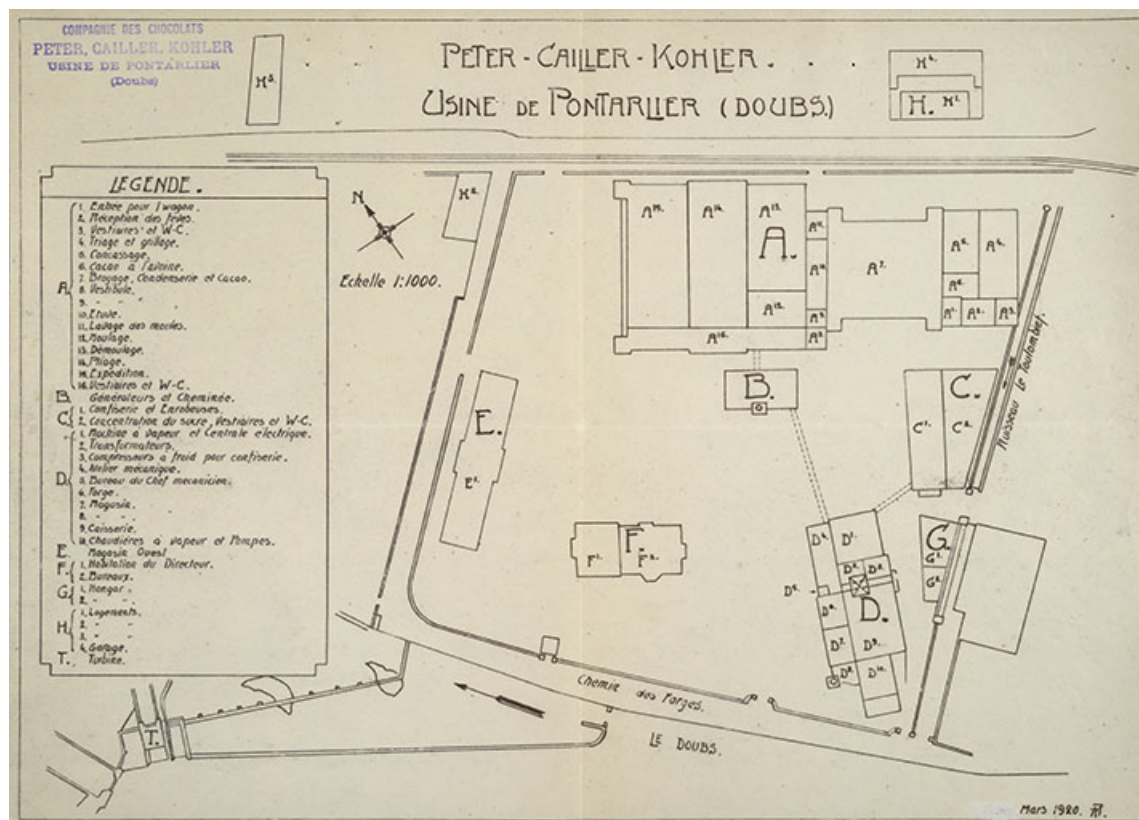 COMPAGNIE DES CHOCOLATS
PETER, CAILLER, KOHLER
USINE DE PONTARLIER
(Doubs)
PETER-CAILLER-KOHLER.
USINE DE PONTARLIER (DOUBS.)
H3.
H4.
H. H1.
LEGENDE.
A
1. Entrée pour 1 wagon.
2. Réception des fèves.
3. Vestiaires et W-C.
4. Triage et grillage.
5. Concassage.
6. Cacao à l'avoine.
7. Broyage, Condenserie et Cacao.
8. Vestibule.
9. " "
10. Etuve.
11. Lavage des moules.
12. Moulage.
13. Démoulage.
14. Pliage.
15. Expédition.
16. Vestiaires et W-C.
B Générateurs et Cheminée.
C
1. Confiserie et Enrobeuses.
2. Concentration du sucre, Vestiaires et W-C.
D
1. Machine à vapeur et Centrale électrique.
2. Transformateurs.
3. Compresseurs à froid pour confiserie.
4. Atelier mécanique.
5. Bureau du Chef mécanicien.
6. Forge.
7. Magasin.
8. " "
9. Caisserie.
10. Chaudières à vapeur et Pompes.
E. Magasin Ouest
F.
1. Habitation du Directeur.
2. Bureaux.
G.
1. Hangar.
2. " "
H.
1. Logements.
2. " "
3. " "
4. Garage.
T. Turbine.
N
Echelle 1:1000.
H2.
A15.
A14.
A13.
A.
A12.
A11.
A10.
A16.
A7.
A5.
A4.
A6.
A1.
A2.
A3.
B.
C.
C1.
C2.
Ruisseau Le Toulombief.
E.
E1.
F.
F1.
F2.
D4.
D1.
D5.
D.
D7.
D9.
D10.
G.
G1.
G2.
Chemin des Forges.
LE DOUBS.
T.
Mars 1920.